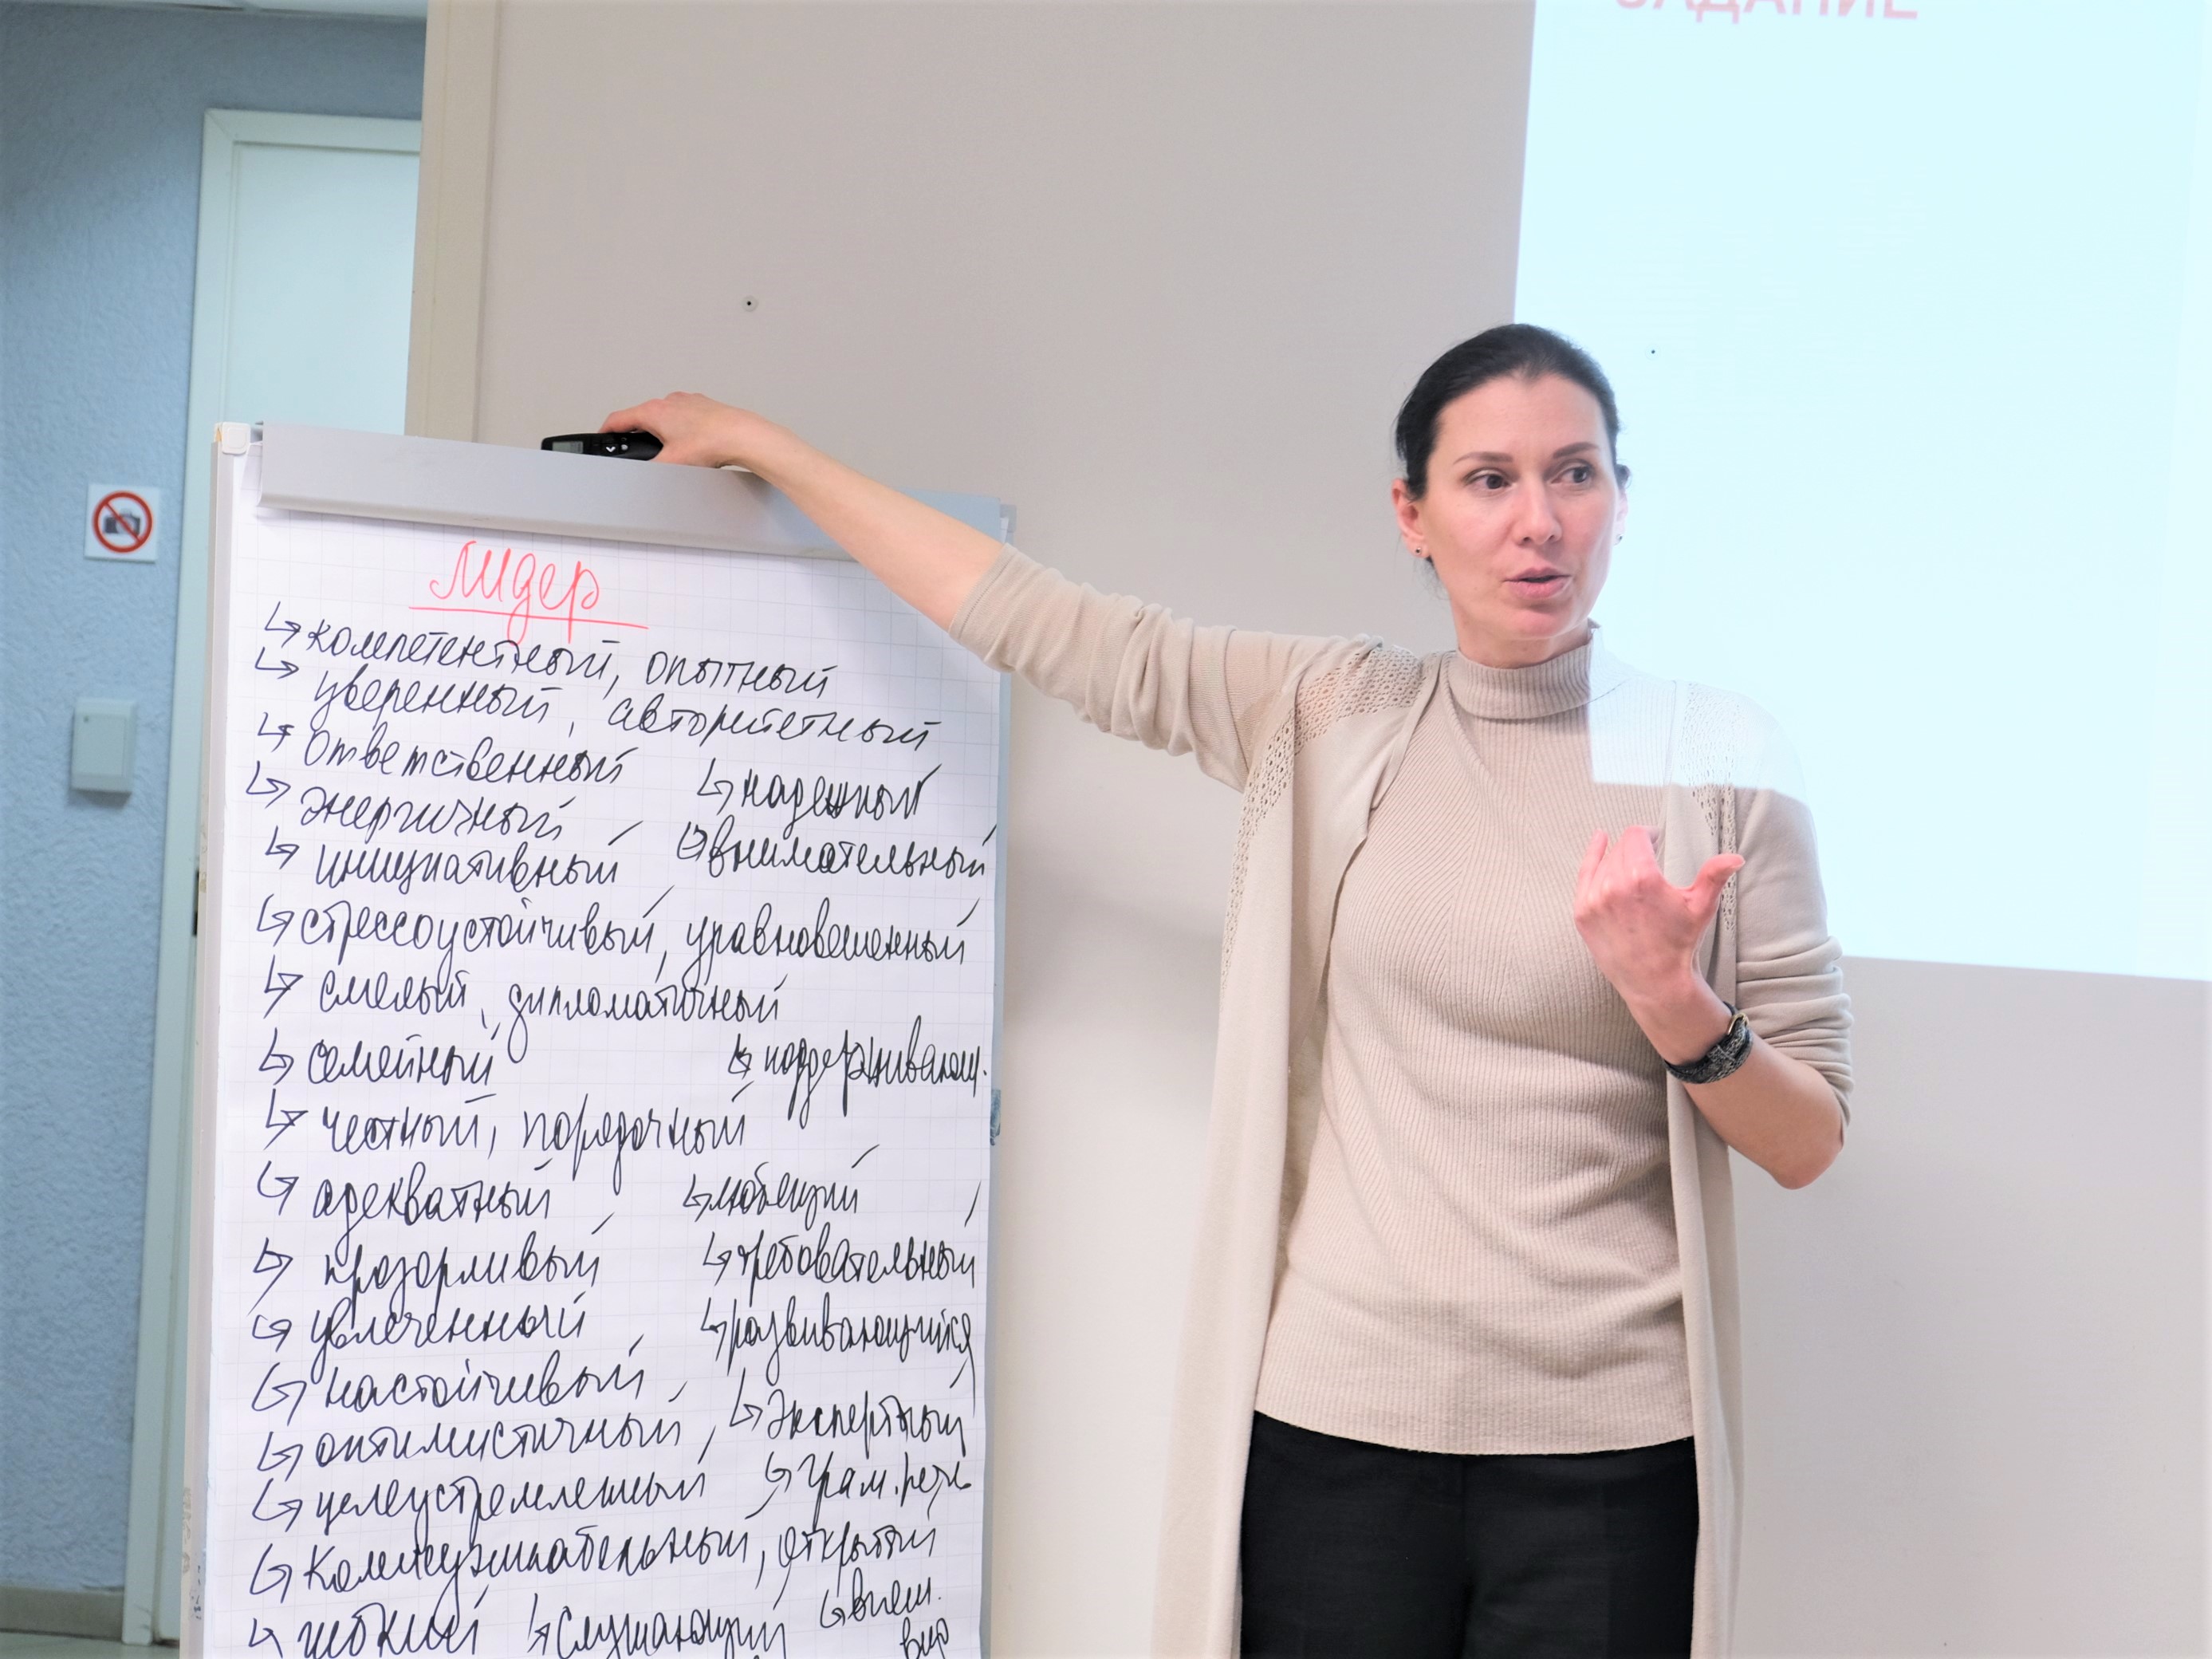 ЗАДАНИЕ
Лидер
↳ компетентный, опытный
↳ уверенный, авторитетный
↳ ответственный
↳ надежный
↳ энергичный
↳ внимательный
↳ инициативный
↳ стрессоустойчивый, уравновешенный
↳ смелый, дипломатичный
↳ семейный
↳ поддерживающ.
↳ честный, порядочный
↳ адекватный
↳ любящий
↳ прозорливый
↳ требовательный
↳ увлеченный
↳ развивающийся
↳ настойчивый,
↳ экспертный
↳ оптимистичный,
↳ грам. речь
↳ целеустремленный
↳ коммуникабельный, открытый
↳ внеш.
вид
↳ гибкий
↳ слушающий